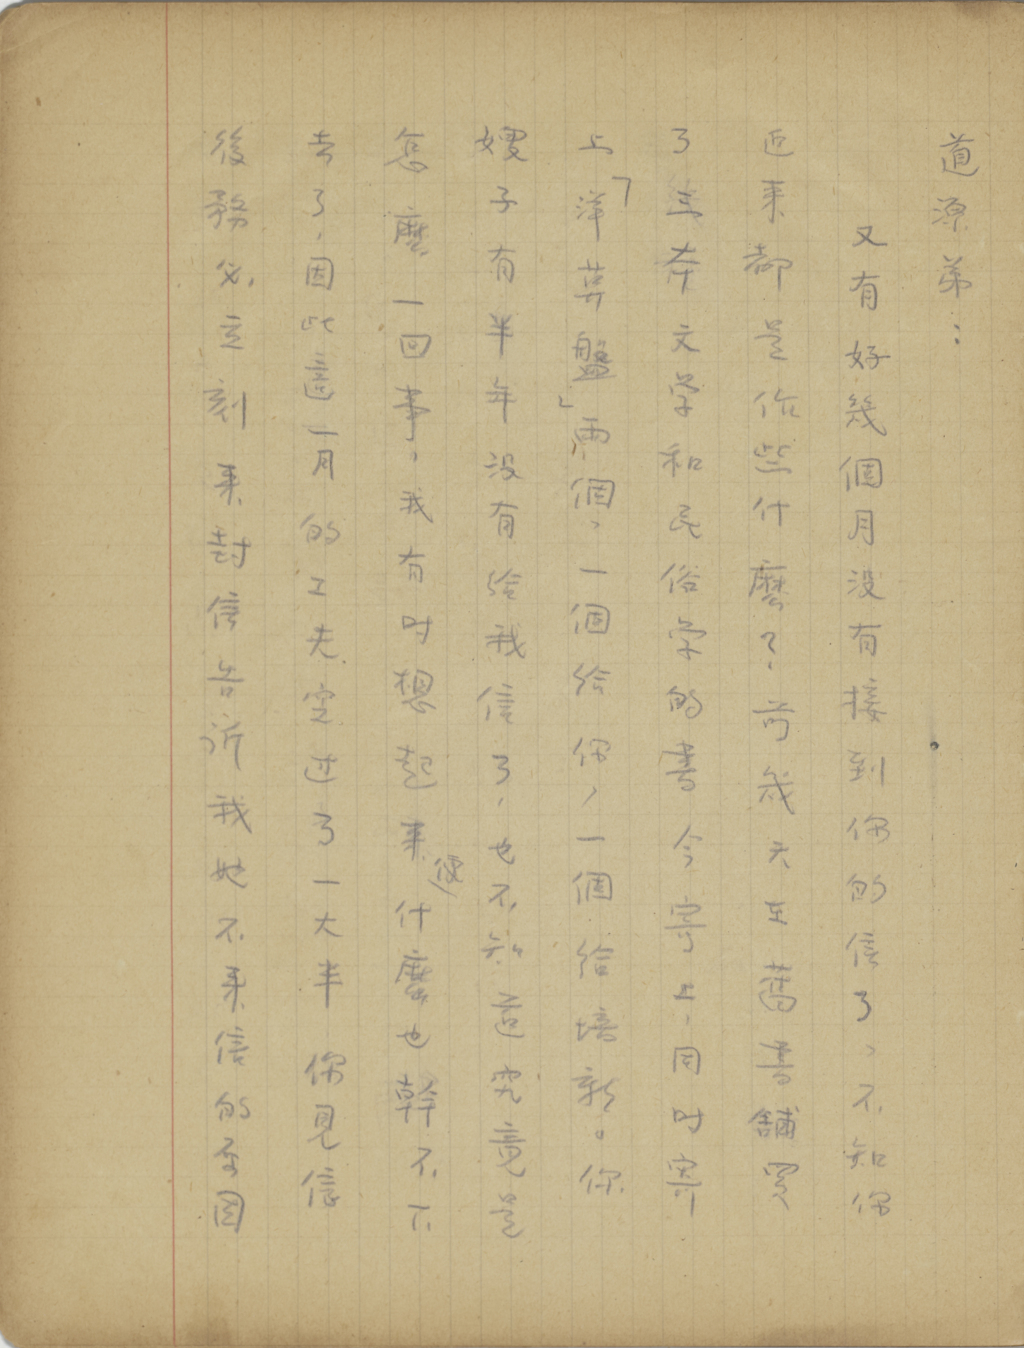 道源弟：
又有好幾個月没有接到你的信了、不知你
近来都是作些什麽了？前幾天在舊書舖買
了三本文学和民俗学的書今寄上，同时寄
上「洋算盤」兩個、一個给你，一個给培新。你
嫂子有半年没有给我信了，也不知道究竟是
怎麽一回事，我有时想起来便什麽也幹不下
去了，因此這一月的工夫空过了一大半 你見信
後務必立刻来封信告訴我她不来信的原因